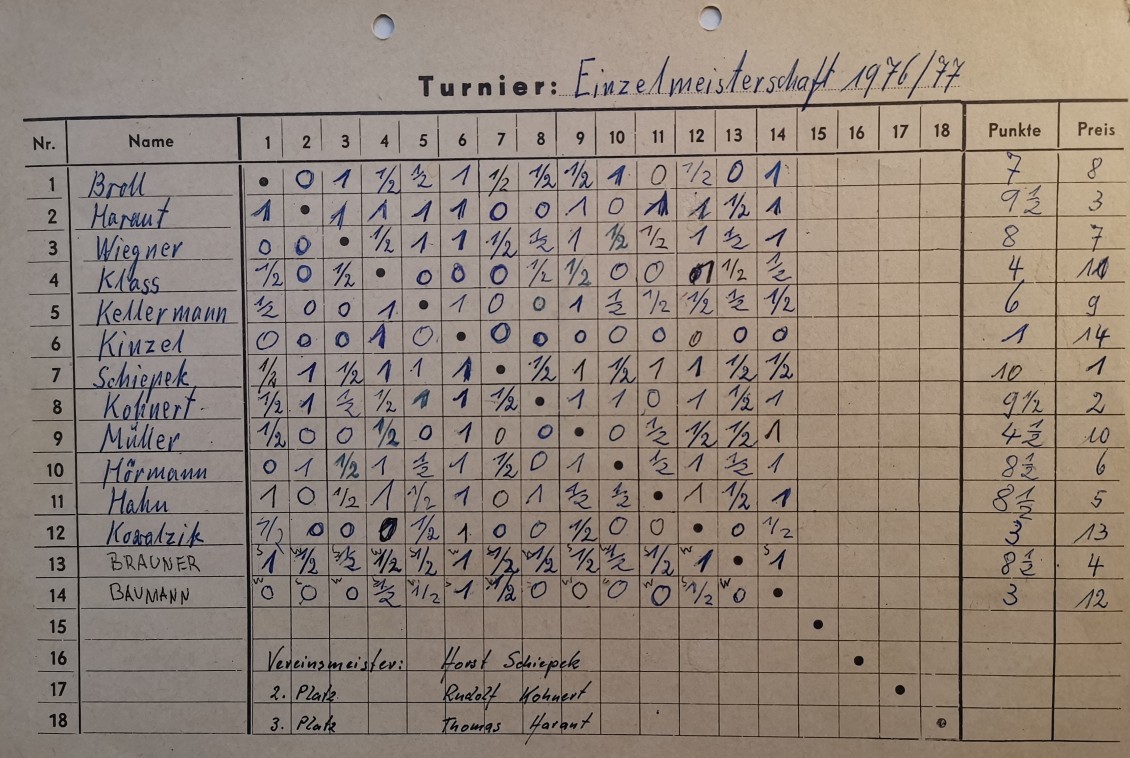 Turnier: Einzelmeisterschaft 1976/77
Nr. Name 1 2 3 4 5 6 7 8 9 10 11 12 13 14 15 16 17 18 Punkte Preis
1 Broll • 0 1 1/2 1/2 1 1/2 1/2 1/2 1 0 1/2 0 1 7 8
2 Haraut 1 • 1 1 1 1 0 0 1 0 1 1 1/2 1 9 1/2 3
3 Wiegner 0 0 • 1/2 1 1 1/2 1/2 1 1/2 1/2 1 1/2 1 8 7
4 Klass 1/2 0 1/2 • 0 0 0 1/2 1/2 0 0 1 1/2 1/2 4
5 Kellermann 1/2 0 0 1 • 1 0 0 1 1/2 1/2 1/2 1/2 1/2 6 9
6 Kinzel 0 0 0 1 0 • 0 0 0 0 0 0 0 0 1 14
7 Schiepek 1/2 1 1/2 1 1 1 • 1/2 1 1/2 1 1 1/2 1/2 10 1
8 Kohnert 1/2 1 1/2 1/2 1 1 1/2 • 1 1 0 1 1/2 1 9 1/2 2
9 Müller 1/2 0 0 1/2 0 1 0 0 • 0 1/2 1/2 1/2 1 4 1/2 10
10 Hörmann 0 1 1/2 1 1/2 1 1/2 0 1 • 1/2 1 1/2 1 8 1/2 6
11 Hahn 1 0 1/2 1 1/2 1 0 1 1/2 1/2 • 1 1/2 1 8 1/2 5
12 Kowalzik 1/2 0 0 0 1/2 1 0 0 1/2 0 0 • 0 1/2 3 13
13 BRAUNER 1 1/2 1/2 1/2 1/2 1 1/2 1/2 1/2 1/2 1/2 1 • 1 8 1/2 4
14 BAUMANN 0 0 0 1/2 1/2 1 1/2 0 0 0 0 1/2 0 • 3 12
15 •
16 Vereinsmeister: Horst Schiepek •
17 2. Platz Rudolf Kohnert •
18 3. Platz Thomas Harant •